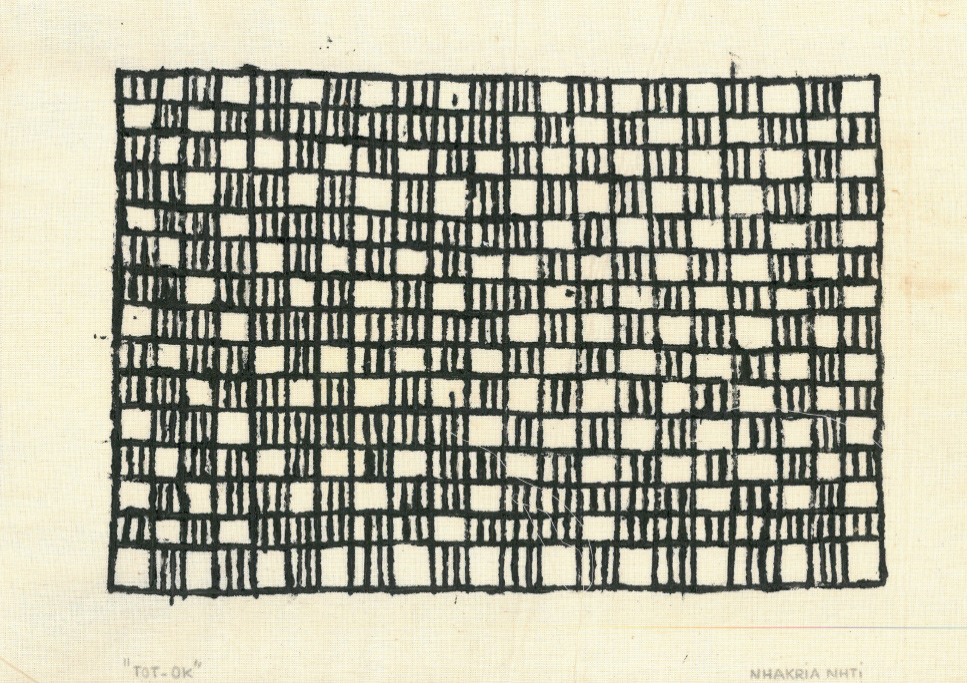 "TOT-OK"
NHAKRIA NHTi